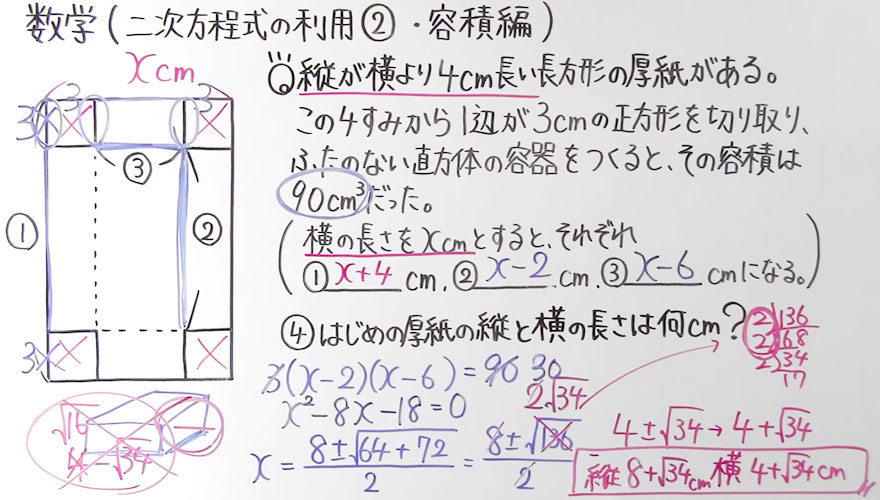 数学(二次方程式の利用②・容積編)
xcm
Q.縦が横より4cm長い長方形の厚紙がある。
この4すみから1辺が3cmの正方形を切り取り、
ふたのない直方体の容器をつくると、その容積は
90cm³だった。
(横の長さをxcmとすると、それぞれ
①x+4cm, ②x-2cm, ③x-6cmになる。)
④はじめの厚紙の縦と横の長さは何cm?
3 3
3
③
①
②
3
3(x-2)(x-6)=90 30
x²-8x-18=0
x=(8±√(64+72))/2=(8±√136)/2
2√34
2)136
2)68
2)34
17
4±√34→4+√34
縦8+√34cm 横4+√34cm
√16
4-√34